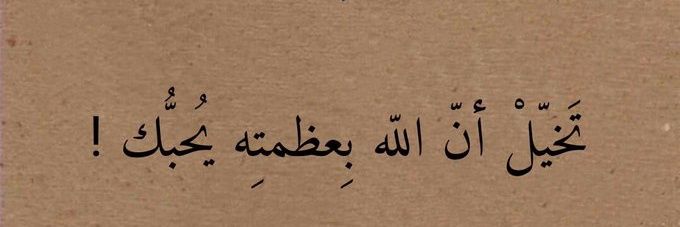 تَخيّلْ أنّ اللّه بِعظمتِهِ يُحبُّك !